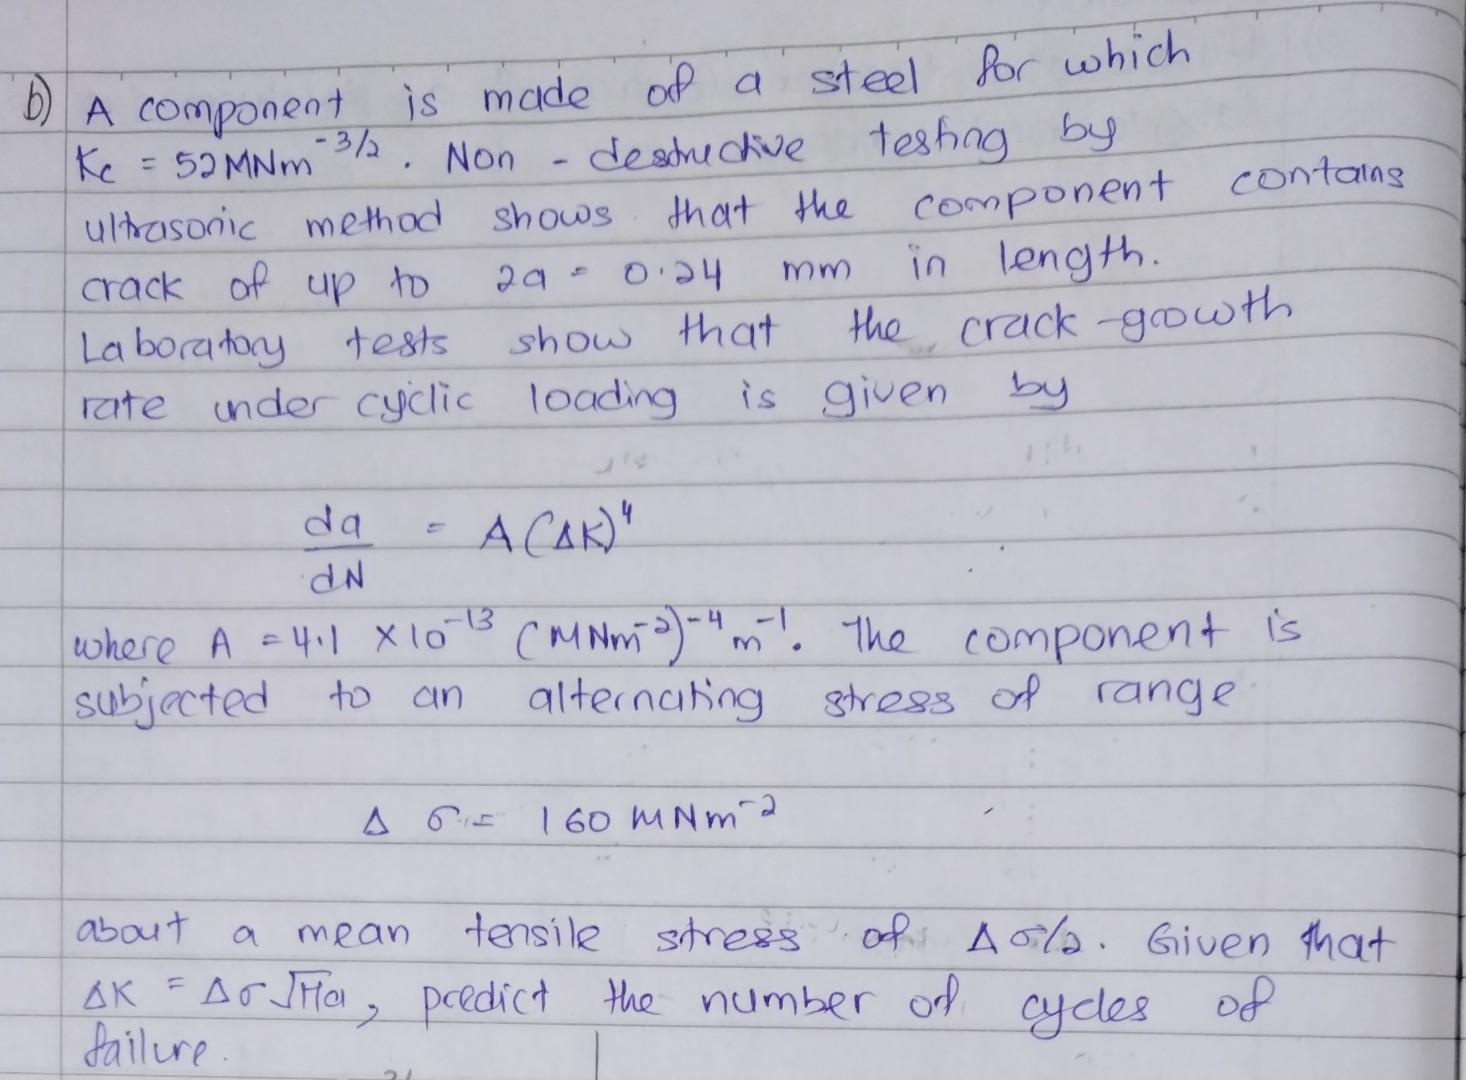 b) A component is made of a steel for which
Kc = 52MNm^-3/2. Non - destructive testing by
ultrasonic method shows that the component contains
crack of up to 2a = 0.24 mm in length.
Laboratory tests show that the crack-growth
rate under cyclic loading is given by
da/dN = A(ΔK)^4
where A = 4.1 × 10^-13 (MNm^-2)^-4 m^-1. The component is
subjected to an alternating stress of range
Δσ = 160 MNm^-2
about a mean tensile stress of Δσ/2. Given that
ΔK = Δσ√πa, predict the number of cycles of
failure.